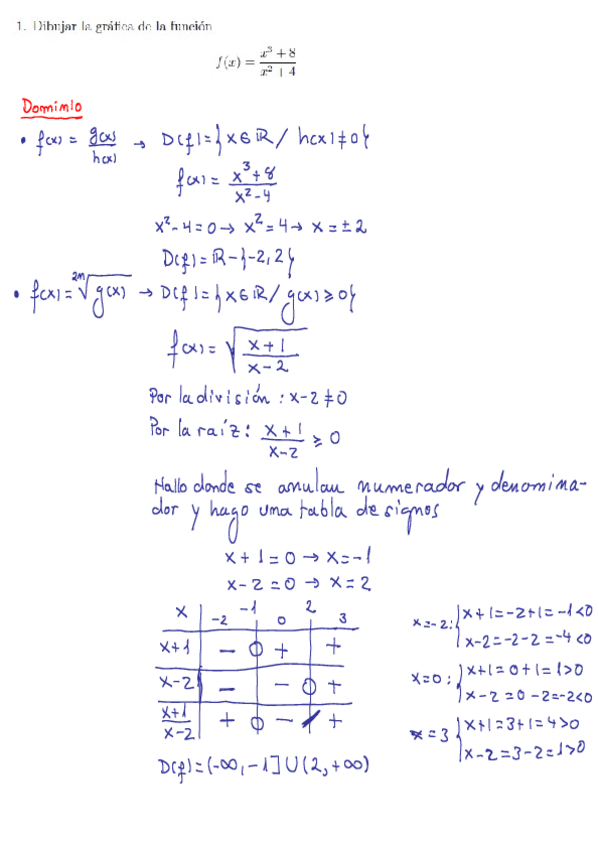 1. Dibujar la gráfica de la función
f(x) = x³ + 8 / x² + 4
Dominio
• f(x) = g(x) / h(x) → D(f) = {x ∈ ℝ / h(x) ≠ 0}
f(x) = x³ + 8 / x² - 4
x² - 4 = 0 → x² = 4 → x = ± 2
D(f) = ℝ - {-2, 2}
• f(x) = ²ⁿ√g(x) → D(f) = {x ∈ ℝ / g(x) ≥ 0}
f(x) = √(x + 1 / x - 2)
Por la división : x - 2 ≠ 0
Por la raíz : x + 1 / x - 2 ≥ 0
Hallo donde se anulan numerador y denomina-
dor y hago una tabla de signos
x + 1 = 0 → x = -1
x - 2 = 0 → x = 2
x -2 -1 0 2 3
x+1 - 0 + +
x-2 - - 0 +
x+1 / x-2 + 0 - / +
D(f) = (-∞, -1] ∪ (2, +∞)
x = -2 : { x+1 = -2+1 = -1 < 0
x-2 = -2-2 = -4 < 0
x = 0 : { x+1 = 0+1 = 1 > 0
x-2 = 0-2 = -2 < 0
x = 3 { x+1 = 3+1 = 4 > 0
x-2 = 3-2 = 1 > 0